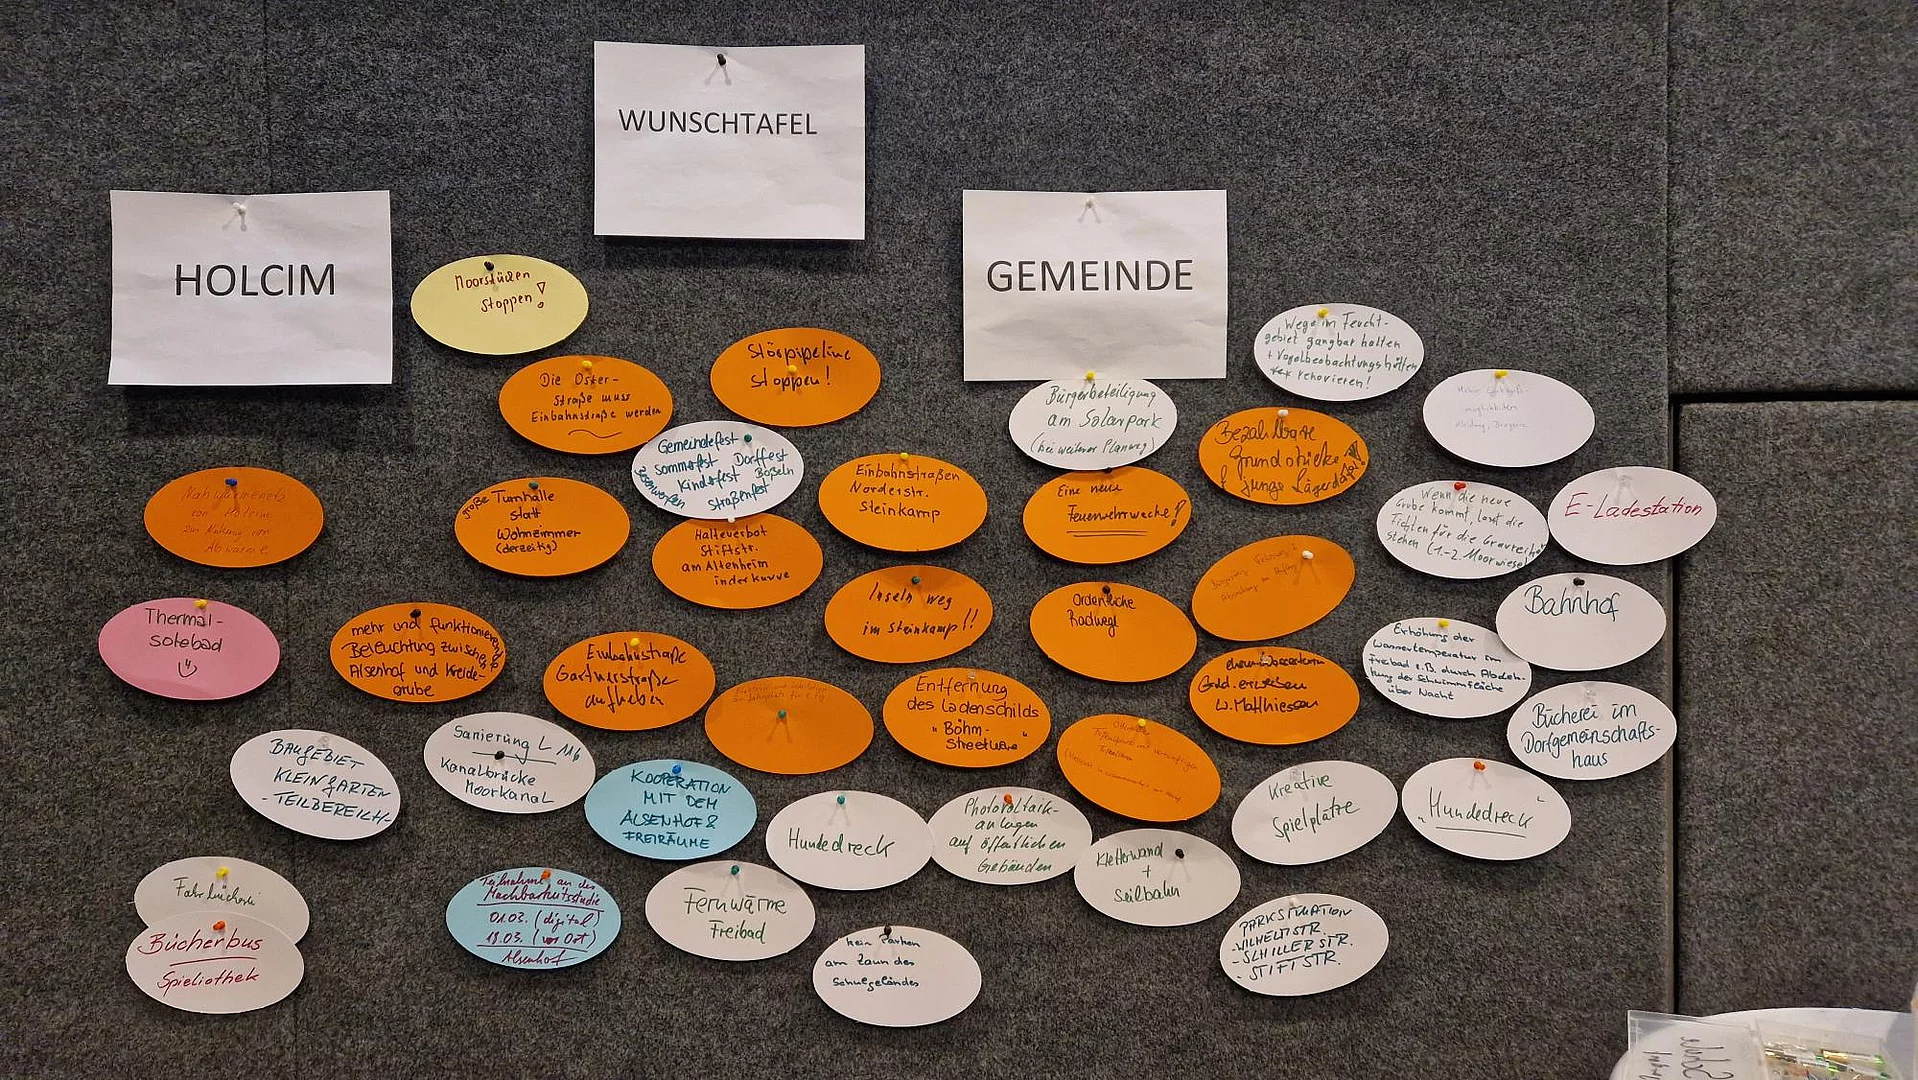 WUNSCHTAFEL
HOLCIM
GEMEINDE
stoppen!
Störpipeline
stoppen!
Die Oster-
straße muss
Einbahnstraße werden
Wege im Feucht-
gebiet gangbar halten
+ Vogelbeobachtungshütten
renovieren!
Bürgerbeteiligung
am Solarpark
(bei weiterer Planung)
Bezahlbare
Grundstücke
f. junge
Gemeindefest
Sommerfest Dorffest
Kinderfest Boßeln
Straßenfest
Einbahnstraßen
Norderstr.
Steinkamp
Eine neue
Feuerwehrwache!
Wenn die neue
Grube kommt, lasst die
Fichten für die
stehen (1.-2. Moorwiese)
E-Ladestation
Nahwärmenetz
von Holcim
zur Nutzung von
Abwärme
große Turnhalle
statt
Wohnzimmer
(derzeitig)
Halteverbot
Stiftstr.
am Altenheim
in der Kurve
Inseln weg
im Steinkamp!!
Ordentliche
Radwege
Bahnhof
Thermal-
solebad
mehr und funktionierende
Beleuchtung zwischen
Alsenhof und Kreide-
grube
Einbahnstraße
Gärtnerstraße
aufheben
Entfernung
des Ladenschilds
"Böhm-
Streetware"
W. Matthiessen
Erhöhung der
Wassertemperatur im
Freibad z.B. durch Abdek-
kung der Schwimmfläche
über Nacht
Bücherei im
Dorfgemeinschafts-
haus
BAUGEBIET
KLEINGÄRTEN
-TEILBEREICH-
Sanierung L 116
Kanalbrücke
Moorkanal
KOOPERATION
MIT DEM
ALSENHOF &
FREIRÄUME
Hundedreck
Photovoltaik-
anlagen
auf öffentlichen
Gebäuden
Kletterwand
+
Seilbahn
Kreative
Spielplätze
"Hundedreck"
Fahrbücherei
Bücherbus
Spieliothek
Teilnahme an der
Machbarkeitsstudie
01.03. (digital)
18.03. (vor Ort)
Alsenhof
Fernwärme
Freibad
kein Parken
am Zaun des
Schulgeländes
PARKSITUATION
-WILHELMSTR.
-SCHILLERSTR.
- STIFTSTR.